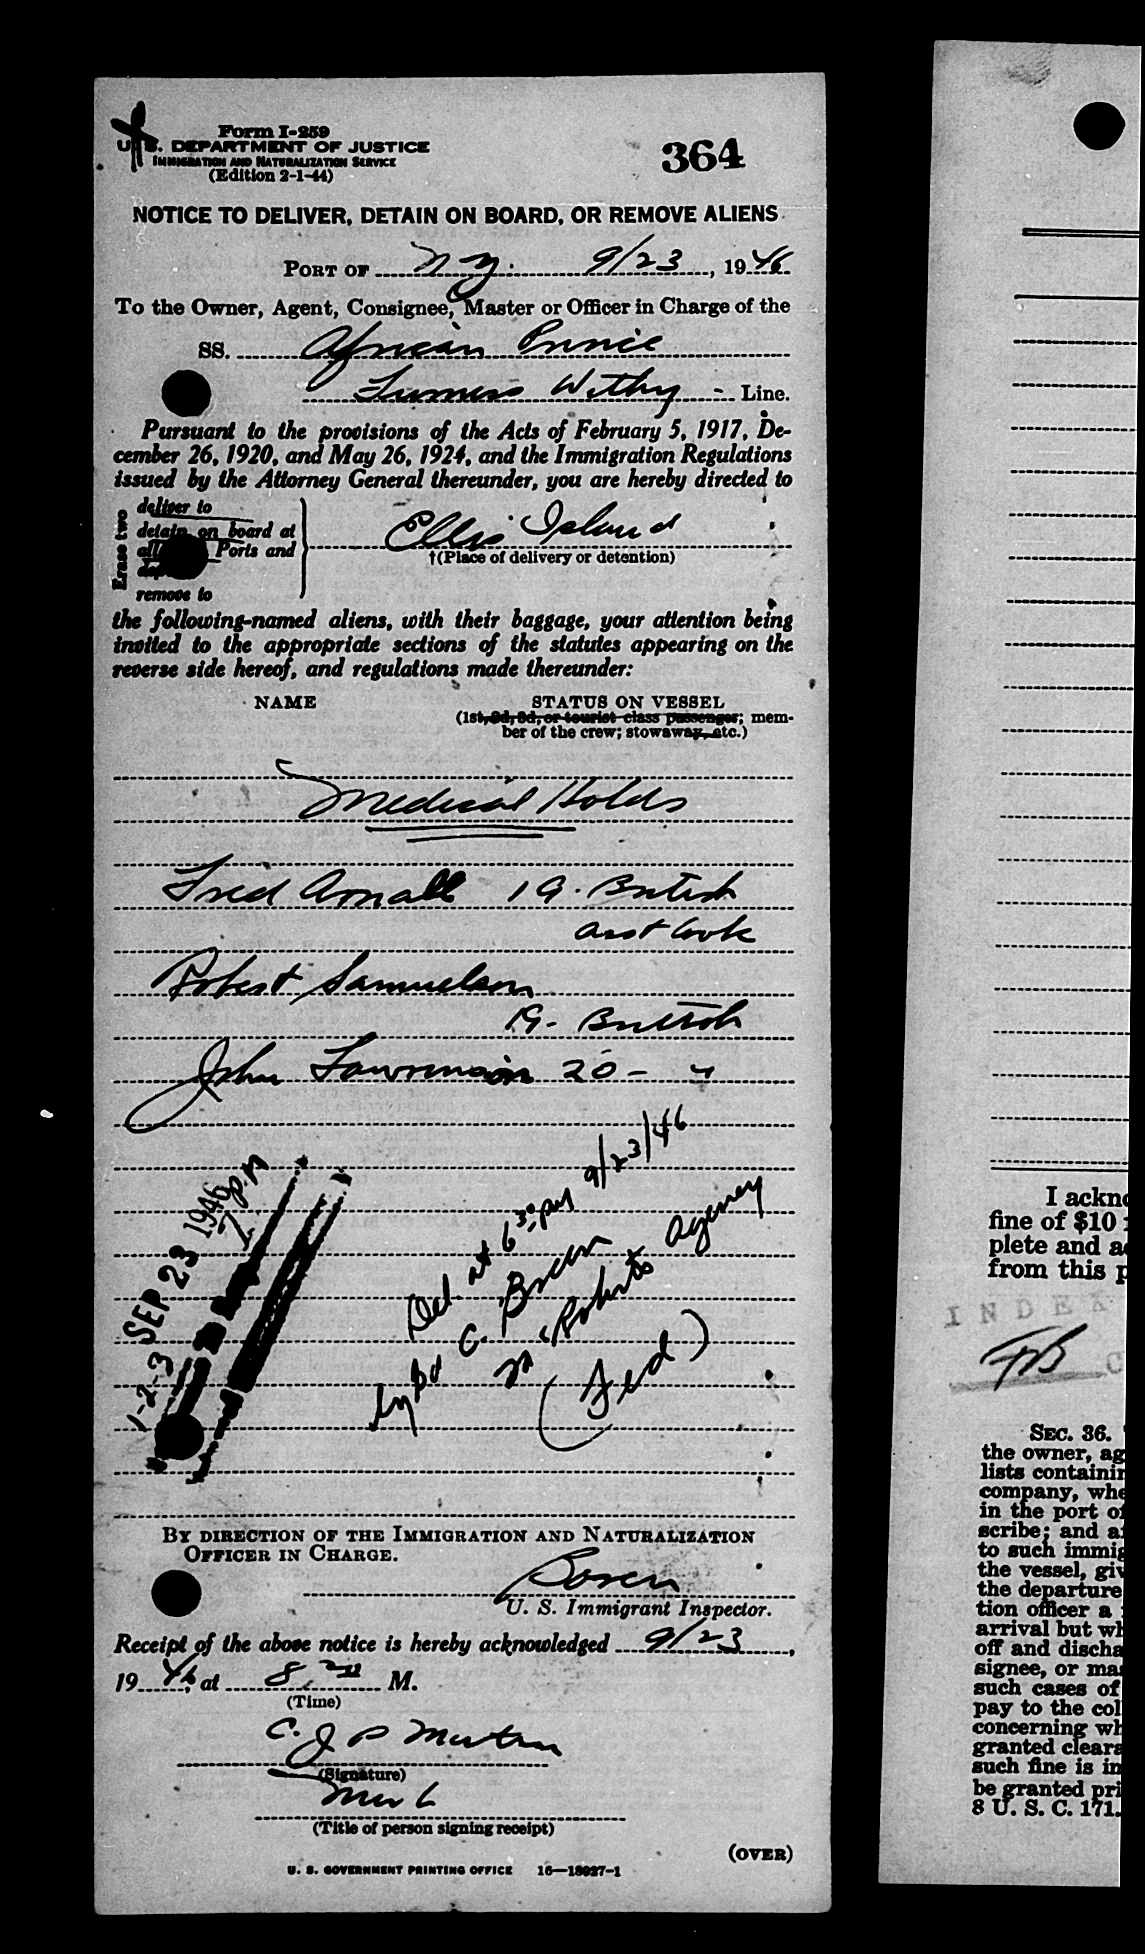 Form I-259
U. S. DEPARTMENT OF JUSTICE
IMMIGRATION AND NATURALIZATION SERVICE
(Edition 2-1-44)
364
NOTICE TO DELIVER, DETAIN ON BOARD, OR REMOVE ALIENS
PORT OF N Y. 9/23, 1946
To the Owner, Agent, Consignee, Master or Officer in Charge of the
SS. African Prince
Furness Withy - Line.
Pursuant to the provisions of the Acts of February 5, 1917, De-
cember 26, 1920, and May 26, 1924, and the Immigration Regulations
issued by the Attorney General thereunder, you are hereby directed to
Erase two
deliver to
detain on board at
all Ports and
remove to
Ellis Island
†(Place of delivery or detention)
the following-named aliens, with their baggage, your attention being
invited to the appropriate sections of the statutes appearing on the
reverse side hereof, and regulations made thereunder:
NAME STATUS ON VESSEL
(1st, 2d, 3d, or tourist class passenger; mem-
ber of the crew; stowaway, etc.)
Medical Holds
Fred Arnall 19. British
asst Cook
Robert Samuelson
19- British
John Lawrenson 20- "
1-2-3 SEP 23 1946
7 PM
Del. at 6 30 pm 9/23/46
by Bd C. Breen
Roberts Agency
(Fed)
BY DIRECTION OF THE IMMIGRATION AND NATURALIZATION
OFFICER IN CHARGE.
U. S. Immigrant Inspector.
Receipt of the above notice is hereby acknowledged 9/23,
1946, at 8 M.
(Time)
C. J P Martin
(Signature)
(Title of person signing receipt)
(OVER)
U. S. GOVERNMENT PRINTING OFFICE 16—18927-1
I ackno
fine of $10
plete and a
from this p
INDEX
SEC. 36.
the owner, ag
lists containin
company, whe
in the port of
scribe; and a
to such immig
the vessel, giv
the departure
tion officer a
arrival but wh
off and discha
signee, or mas
such cases of
pay to the col
concerning wh
granted cleara
such fine is im
be granted pri
8 U. S. C. 171.